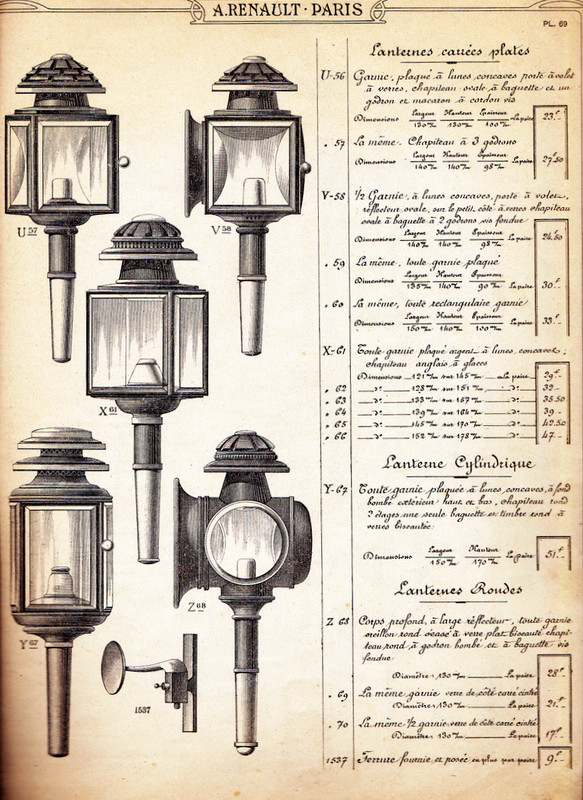 A. RENAULT · PARIS
PL. 69
Lanternes carrées plates
U-56 Garnie, plaqué à lunes, concaves porte à volet
à verres, chapiteau ovale à baguette et un
godron et macaron à cordon vis
Dimensions Largeur 130 m/m Hauteur 130 m/m Epaisseur 100 m/m La paire 23.-
. 57 La même. Chapiteau à 3 godrons
Dimensions Largeur 140 m/m Hauteur 140 m/m Epaisseur 98 m/m La paire 27.50
V-58 1/2 Garnie, à lunes concaves, porte à volet,
réflecteur ovale, sur le petit côté à verres chapiteau
ovale à baguette à 2 godrons vis fondue
Dimensions Largeur 140 m/m Hauteur 140 m/m Epaisseur 98 m/m La paire 24.50
. 59 La même, toute garnie plaqué
Dimensions Largeur 135 m/m Hauteur 140 m/m Epaisseur 90 m/m La paire 30.-
. 60 La même, toute rectangulaire garnie
Dimensions Largeur 160 m/m Hauteur 140 m/m Epaisseur 100 m/m La paire 33.-
X-61 Toute garnie plaqué argent à lunes, concaves,
chapiteau anglais à glaces
Dimensions 121 m/m sur 145 m/m La paire 29.-
. 62 d° 128 m/m sur 151 m/m d° 32 -
. 63 d° 133 m/m sur 157 m/m d° 35.50
. 64 d° 139 m/m sur 164 m/m d° 39 -
. 65 d° 145 m/m sur 170 m/m d° 42.50
. 66 d° 152 m/m sur 178 m/m d° 47 -
Lanterne Cylindrique
Y-67 Toute garnie plaquée à lunes, concaves, à fond
bombé extérieur haut et bas, chapiteau rond
3 étages une seule baguette et timbre rond à
verres biseautés
Dimensions Largeur 150 m/m Hauteur 170 m/m La paire 51.-
Lanternes Rondes
Z 68 Corps profond, à large réflecteur, toute garnie
oreillon rond à verre plat biseauté chapi-
teau rond, à godron bombé et à baguette vis
fondue
Diamètre, 130 m/m La paire 28.-
. 69 La même garnie verre de côté carré cintré
Diamètre, 130 m/m La paire 21.-
. 70 La même 1/2 garnie verre de côté carré cintré
Diamètre, 130 m/m La paire 17.-
1537 Ferrure fournie et posée en plus par paire 9.-
U 57
V 58
X 61
Y 67
Z 68
1537